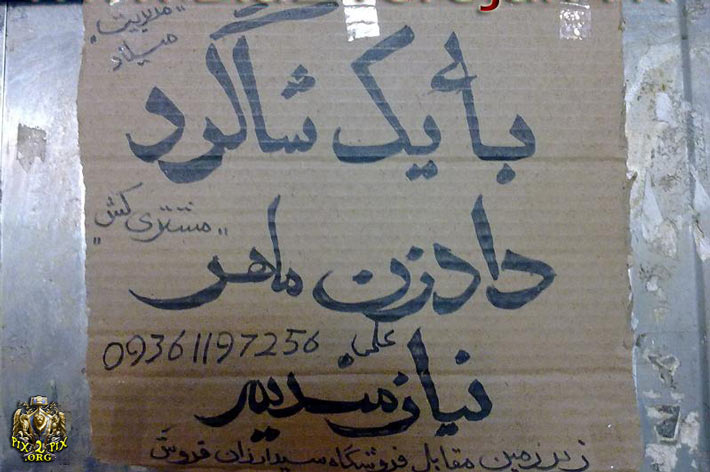 "مدیریت"
میلاد
بائ یک شاگرد
"مشتری کش"
دادزن ماهر
علی 09361197256
نیازمندیم
زیرزمین مقابل فروشگاه سید ارزان فروش
PIX2PIX
.ORG